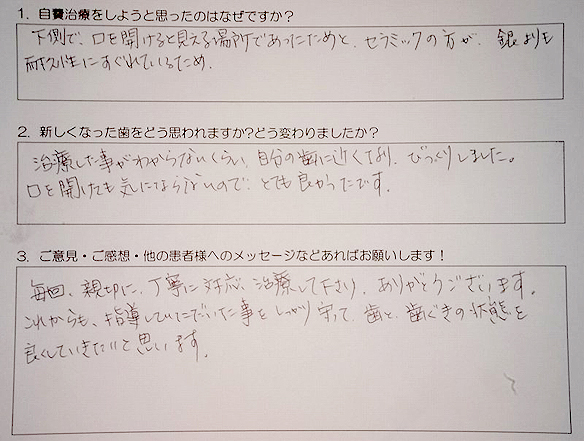 1. 自費治療をしようと思ったのはなぜですか？
下側で、口を開けると見える場所であったためと、セラミックの方が、銀よりも
耐久性にすぐれているため。
2. 新しくなった歯をどう思われますか?どう変わりましたか？
治療した事がわからないくらい、自分の歯に近くなり、びっくりしました。
口を開けても気にならないので、とても良かったです。
3. ご意見・ご感想・他の患者様へのメッセージなどあればお願いします！
毎回、親切に、丁寧に対応、治療して下さり、ありがとうございます。
これからも、指導していただいた事をしっかり守って、歯と、歯ぐきの状態を
良くしていきたいと思います。